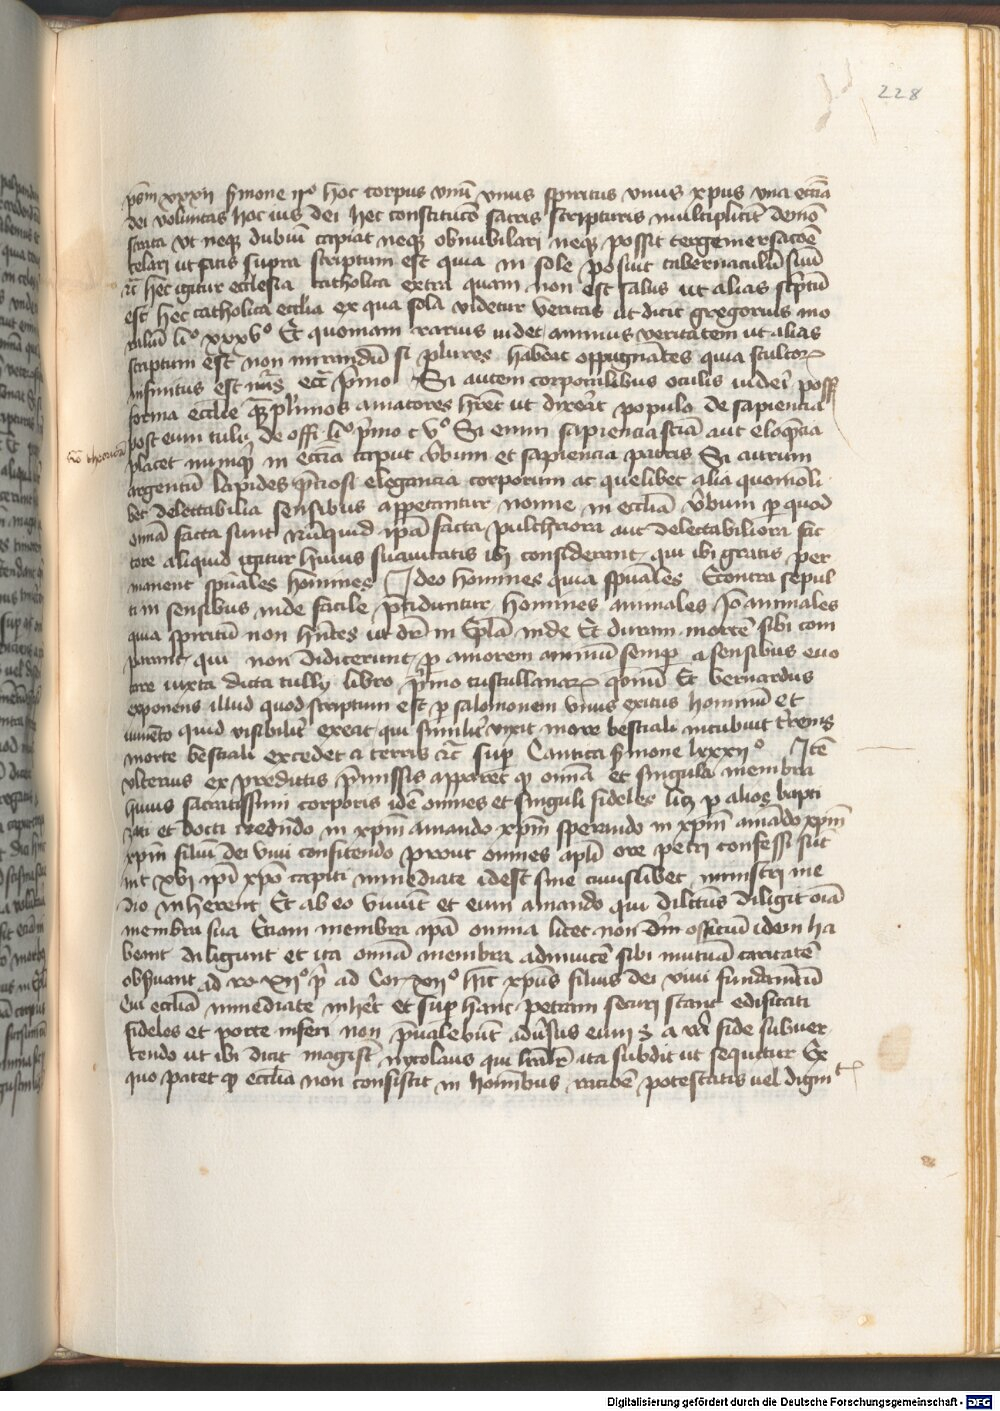 228
psm xxxii sermone iio hoc corpus vnum vnus spiritus vnus xpus vna ecclia
dei voluntas hoc ius dei hec constitucio sacris scripturis multipliciter demon
strata vt neqz dubium capiat neqz obnubilari neqz possit tergeuersacione
celari ut satis supra scriptum est quia in sole posuit tabernaculum suum
etc hec igitur ecclesia catholica extra quam non est salus ut alias scriptum
est hec catholica ecclia ex qua sola videtur veritas ut dicit gregorius mo
ralium lio xxxvo Et quoniam rarius videt animus veritatem ut alias
scriptum est non mirandum si plures habeat oppugnantes quia stultorum
infinitus est nus ecce primo Si autem corporalibus oculis videri posset
forma ecclie qz plurimos amatores hret ut diceret populo de sapiencia
post eum tulius de offi lio primo c vo Si enim sapiencia sciam aut eloquencia
placet numquid in ecclia caput verbum et sapiencia patris Si aurum
argentum lapides preciosi elegancia corporum ac quelibet alia quomodoli
bet delectabilia sensibus appetantur nonne in eccliam verbum per quod
omnia facta sunt Numquid ipsa facta pulchriora aut delectabiliora fac
tore aliquid igitur huius suauitatis ibi considerant qui ibi gratis per
manent spirituales homines Ideo homines quia spuales Econtra sepul
ti in sensibus inde facile preciduntur homines animales Io animales
quia spiritum non hntes ut dr in epla iude Et duram mortem sibi com
parant qui non didicerunt per amorem animum semper a sensibus euo
care iuxta dicta tully libro primo tusculanarum qonum Et bernardus
exponens illud quod scriptum est per salomonem vnus exitus hominum et
iumento quid visibiliter exeat qui similiter vixit more bestiali incubuit terrenis
morte bestiali excedet a terris etc super Cantica sermone lxxxiio Item
vlterius ex predictis premissis apparet qz omnia et singula membra
huius sacratissimi corporis idem omnes et singuli fideles licz per alios bapti
zati et docti credendo in xpm amando xpm sperando in xpm amando xpm
xpm filium dei viui confitendo prout omnes apli ore petri confessi sunt
mt xvi ipsi xpo capiti immediate idest sine cuiuslibet ministri me
dio inherent Et ab eo viuunt et eum amando qui dilectus diligit oia
membra sua Etiam membra ipsa omnia licet non omnia officium idem ha
beant diligunt et ita omnia membra adinuicem sibi mutuam caritatem
obseruant ad ro xiio pr ad Cor xiio hic xpus filius dei viui fundamentum
Cui eccliam immediate inheret et super hanc petram securi stant edificati
fideles et porte inferi non preualebunt aduersus eum z a vera fide subuer
tendo ut ibi dicit magister nycolaus qui ita subdit ut sequitur Ex
quo patet qz ecclia non consistit in hominibus racione potestatis vel dignit
Digitalisierung gefördert durch die Deutsche Forschungsgemeinschaft - DFG